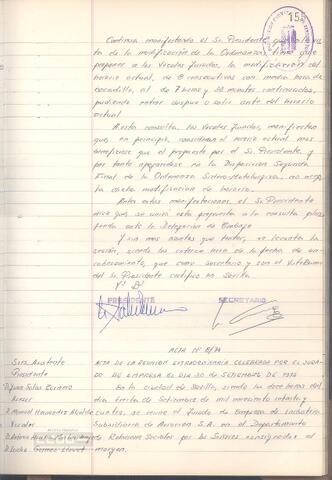 15
Continua manifestando el Sr. Presidente
ta de la modificación de la Ordenanza
propone a los Vocales Jurados, la modificación del
horario actual, de 8 consecutivas con media hora de
bocadillo, al de 7 horas y 50 minutos continuados,
pudiendo entrar despues o salir antes del horario
actual.
A esta consulta, los Vocales Jurados, manifiestan
que en principio, consideran el horario actual mas
beneficioso que el propuesto por el Sr. Presidente, y
por tanto apoyandose en la Disposicion Segunda
Final de la Ordenanza Sidero-Metalurgica, no
la dicha modificacion de horario.
Ante estas manifestaciones, el Sr. Presidente
dice que se unirá esta propuesta a la consulta
ante la Delegacion de Trabajo
Y sin mas asuntos que tratar, se levanta la
sesión, siendo las catorce horas de la fecha de
encabezamiento, que como secretario y con el Visto Bueno
del Sr. Presidente certifico en Sevilla.
Vº Bº
PRESIDENTE SECRETARIO
ACTA Nº 8/74
Sres. Asistentes
Presidente
ACTA DE LA REUNION EXTRAORDINARIA CELEBRADA POR EL JURADO
DE EMPRESA EL DIA 30 DE SETIEMBRE DE 1974
D. Juan Salas
En la ciudad de Sevilla, siendo las doce horas del
dia treinta de Setiembre de mil novecientos setenta y
D. Manuel Hernandez
cuatro, se reune el Jurado de Empresa de Industria
Vocales
Subsidiaria de Aviacion S.A. en el Departamento
D. Antonio
de Relaciones Sociales por los Señores consignados al
D. Carlos Gomez
margen.